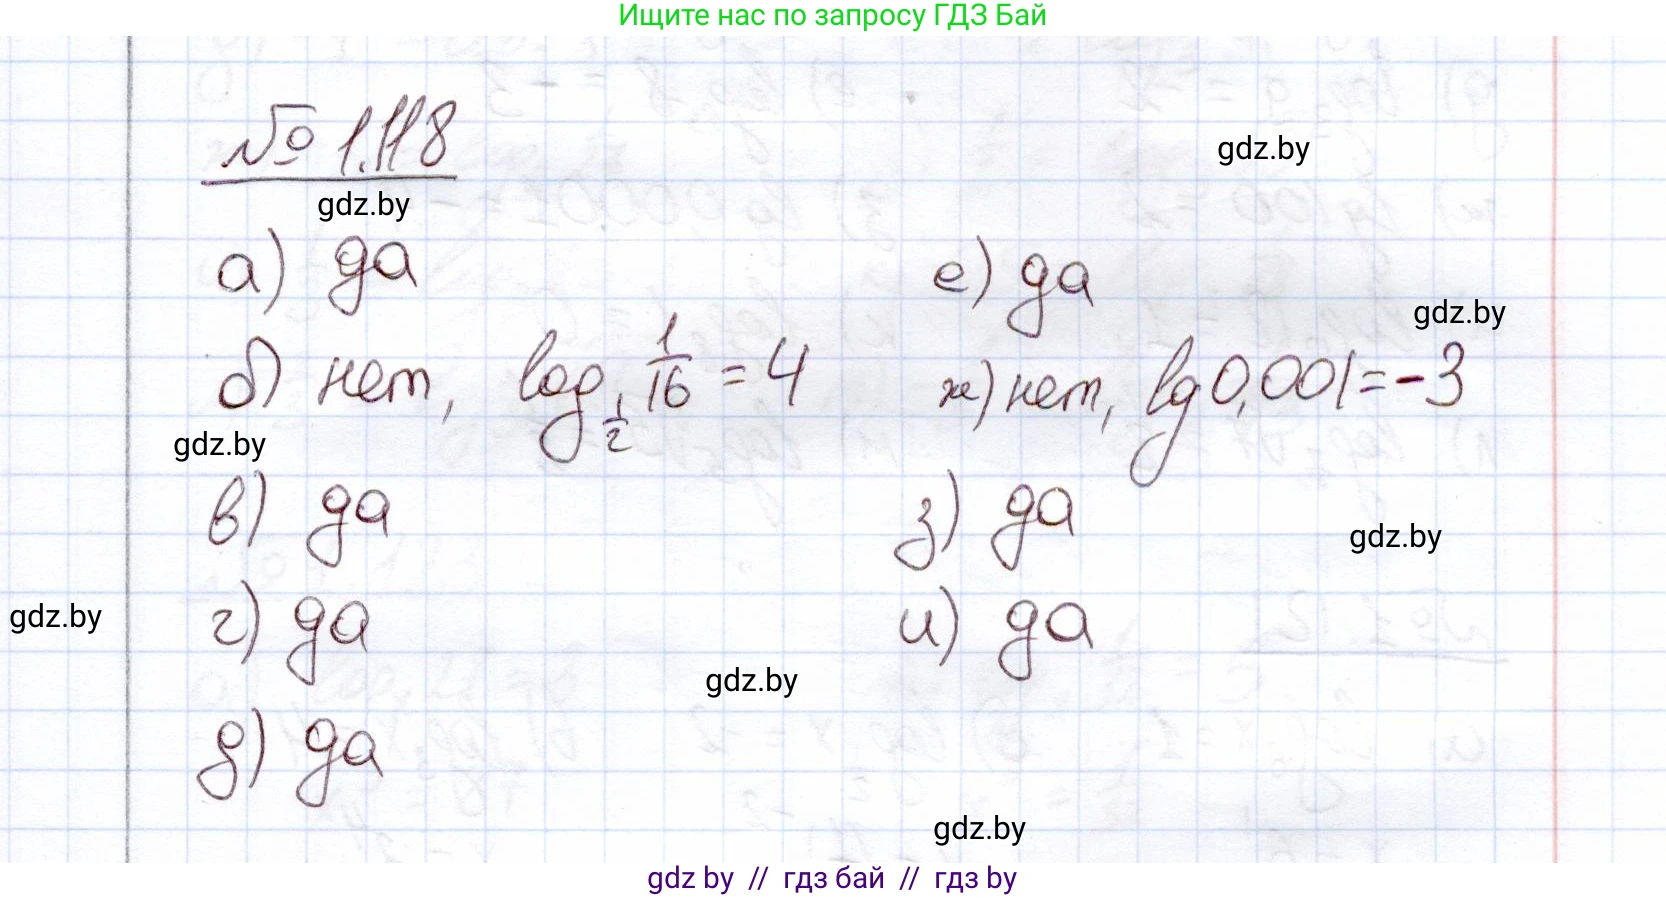 Ищите нас по запросу ГДЗ Бай
№ 1.118
gdz.by
gdz.by
а) да
е) да
gdz.by
б) нет, log_{1/2} 1/16 = 4
ж) нет, lg 0,001 = -3
gdz.by
в) да
з) да
gdz.by
г) да
и) да
gdz.by
gdz.by
д) да
gdz.by
gdz by // гдз бай // гдз by